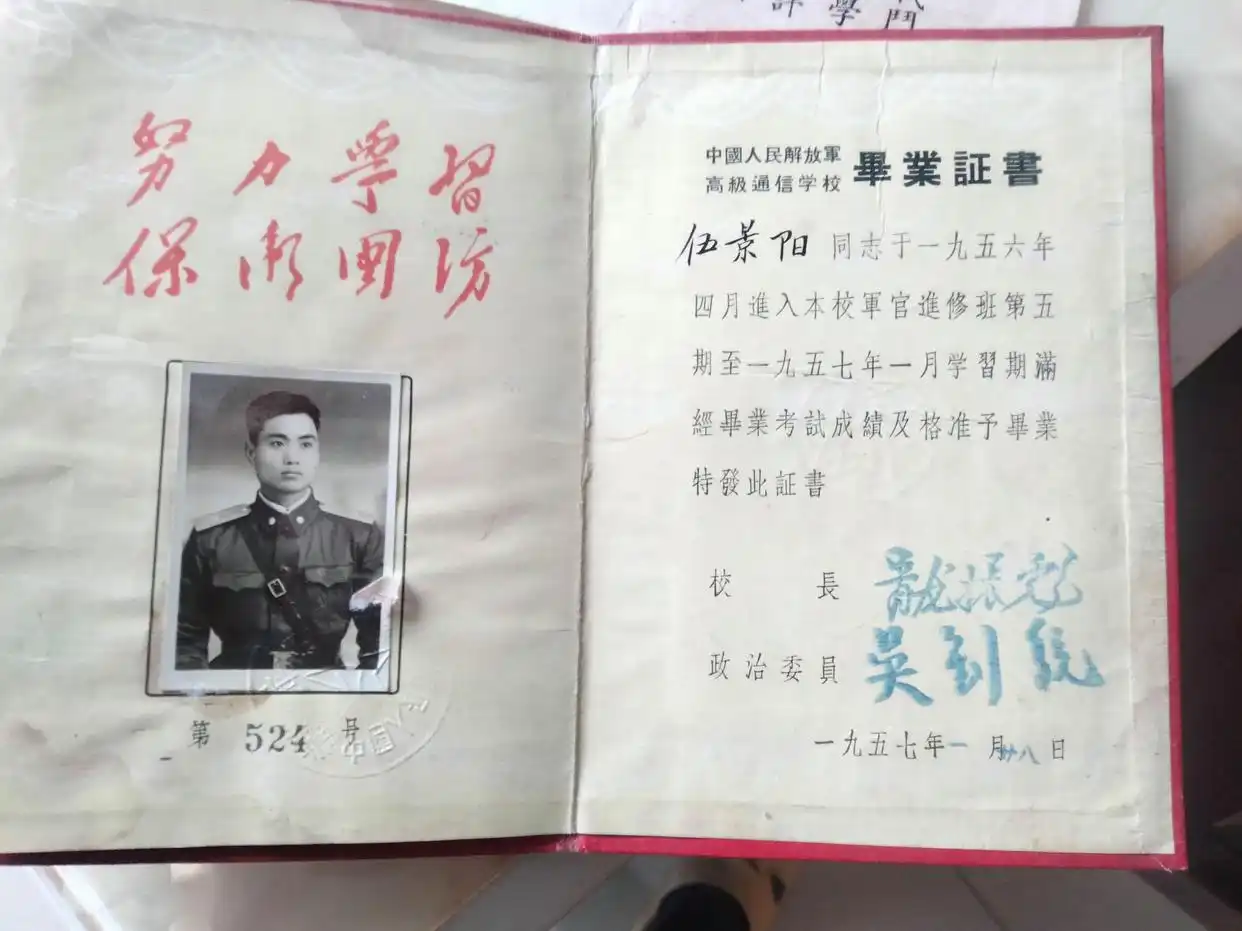 評學鬥
努力學習
保衛國防
第 524 号
中國
中國人民解放軍
高級通信学校
畢業証書
伍景阳 同志于一九五六年
四月進入本校軍官進修班第五
期至一九五七年一月学習期滿
經畢業考試成績及格准予畢業
特發此証書
校長 龍振彪
政治委員 吴钊統
一九五七年一月廿八日